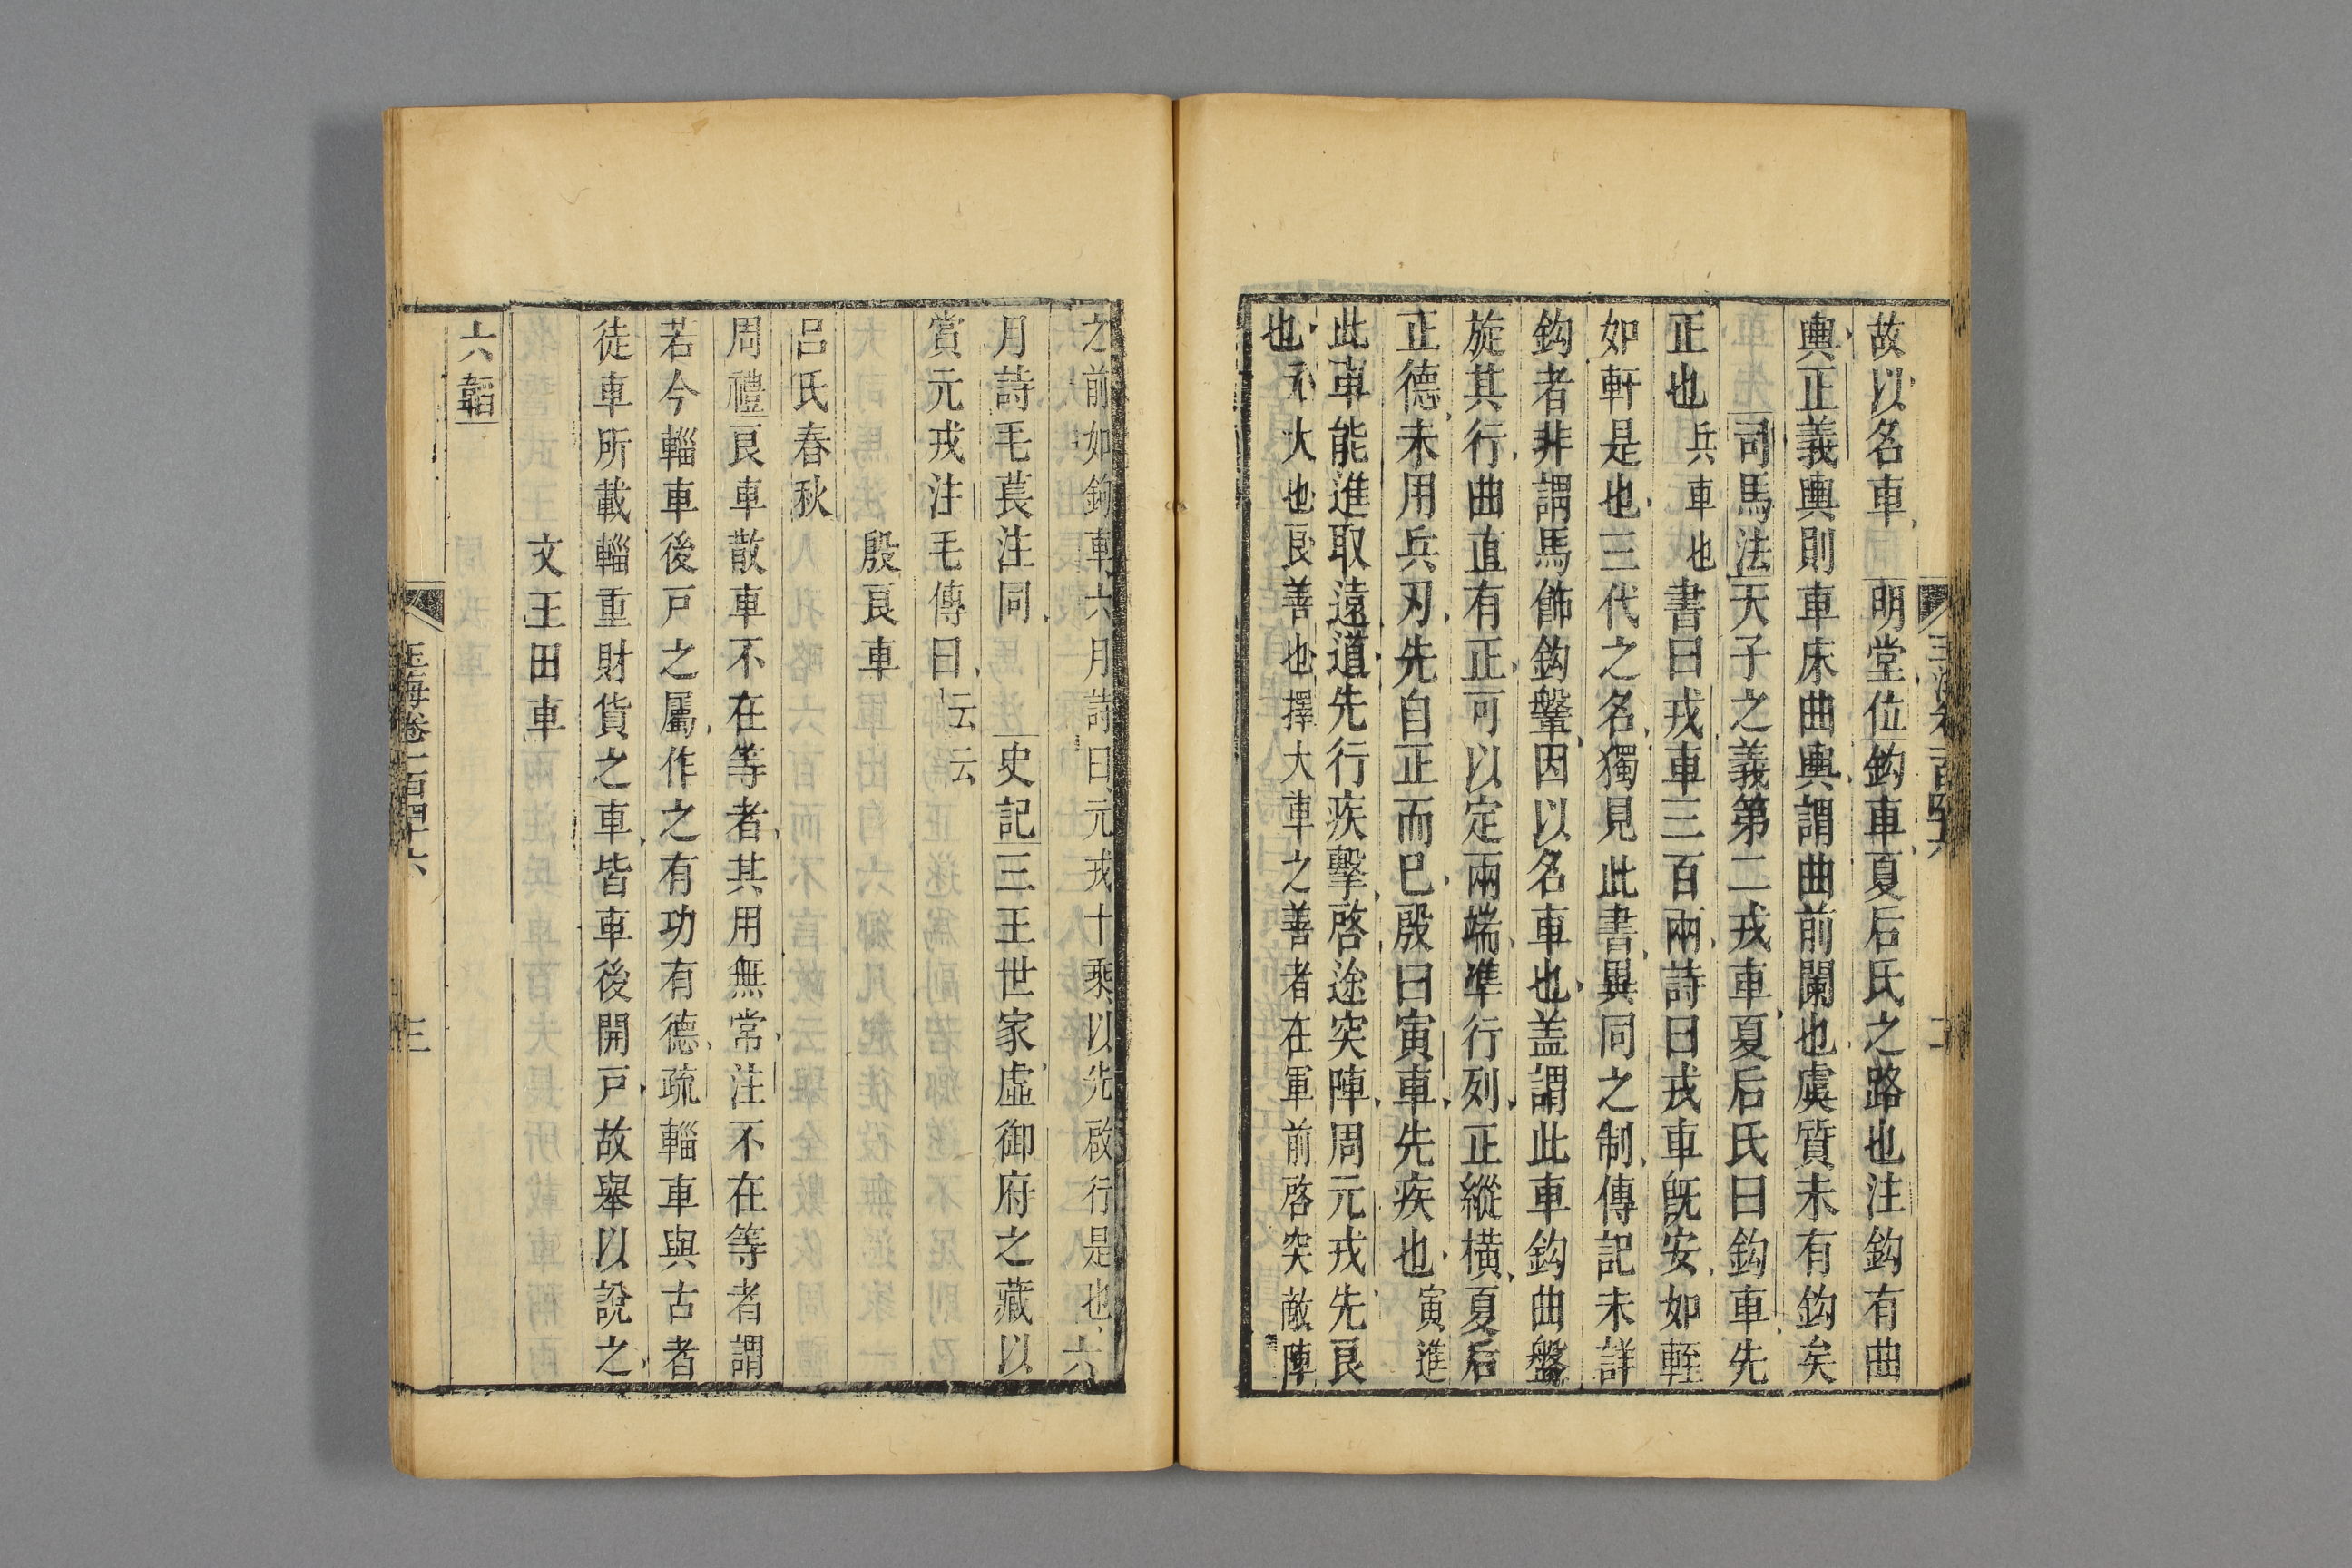 故以名車明堂位鈎車夏后氏之路也注鈎有曲
輿正義輿則車床曲輿謂曲前闌也虞質未有鈎矣
司馬法天子之義第二戎車夏后氏曰鈎車先
正也兵車也書曰戎車三百兩詩曰戎車旣安如輊
如軒是也三代之名獨見此書異同之制傳記未詳
鈎者非謂馬飾鈎鞶因以名車也盖謂此車鈎曲盤
旋其行曲直有正可以定兩端凖行列正縱橫夏后
正德未用兵刃先自正而巳殷曰寅車先疾也寅進
此車能進取遠道先行疾擊啓途突陣周元戎先良
也元大也良善也擇大車之善者在軍前啓突敵陣
之前如鉤車六月詩曰元戎十乘以先啟行是也六
月詩毛萇注同史記三王世家虛御府之藏以
賞元戎注毛傳曰云云
殷良車
呂氏春秋
周禮良車散車不在等者其用無常注不在等者謂
若今輜車後戸之屬作之有功有德疏輜車與古者
徒車所載輜重財貨之車皆車後開戸故舉以說之
文王田車
六韜
玉海卷一百四十六
三